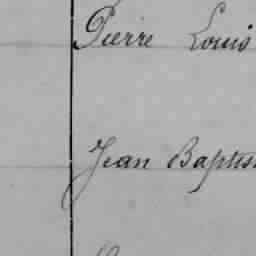 Pierre Louis
Jean Baptis